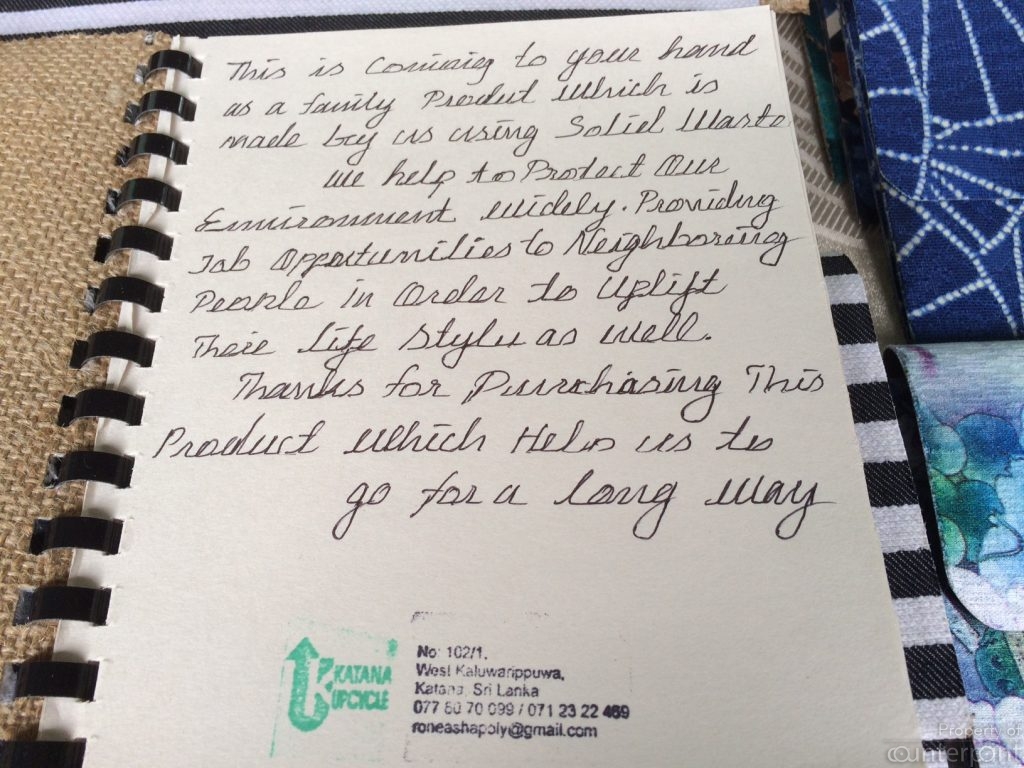 This is Coming to your hand
as a family Product which is
made by us using Solid Waste
we help to Protect Our
Environment widely. Providing
Job Opportunities to Neighboring
People in Order to Uplift
Their life Style as well.
Thanks for Purchasing This
Product which Helps us to
go for a long way
KATANA
UPCYCLE
No: 102/1,
West Kaluwarippuwa,
Katana, Sri Lanka
077 60 70 099 / 071 23 22 469
roneashapoly@gmail.com
Property of
counterpoint